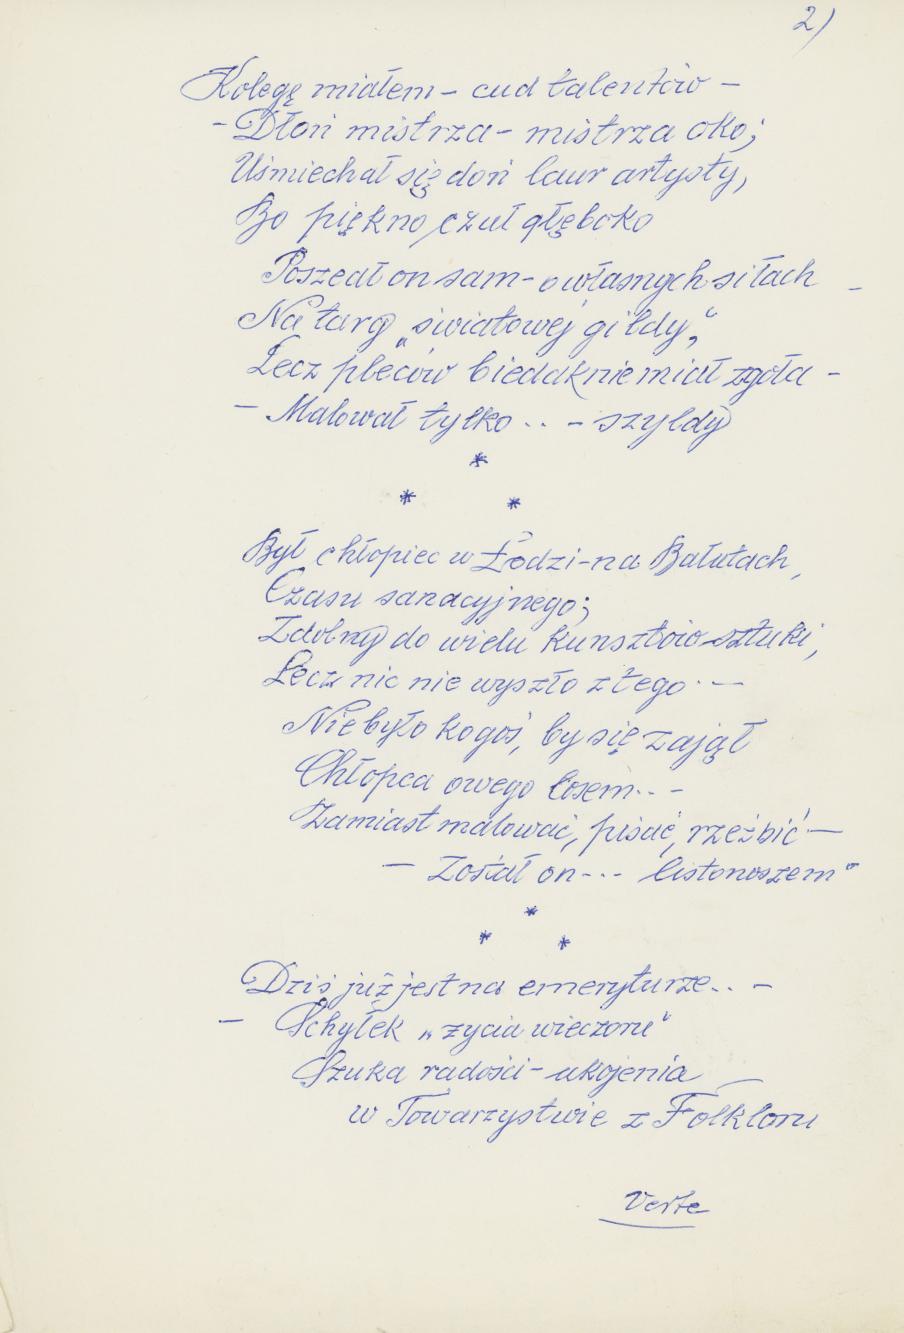 2)
Kolegę miałem – cud talentów –
– Dłoń mistrza – mistrza oko;
Uśmiechał się doń laur artysty,
Bo piękno czuł głęboko
Poszedł on sam – o własnych siłach –
Na targ „światowej gildy”,
Lecz pleców biedak nie miał zgoła –
– Malował tylko .. – szyldy
*
* *
Był chłopiec w Łodzi – na Bałutach,
Czasu sanacyjnego;
Zdolny do wielu kunsztów sztuki,
Lecz nic nie wyszło z tego . –
Nie było kogoś, by się zajął
Chłopca owego losem.. –
Zamiast malować, pisać, rzeźbić –
– Został on --- listonoszem”
*
* *
Dziś już jest na emeryturze.. –
– Schyłek „życia wieczoru”
Szuka radości – ukojenia
w Towarzystwie z Folkloru
Verte